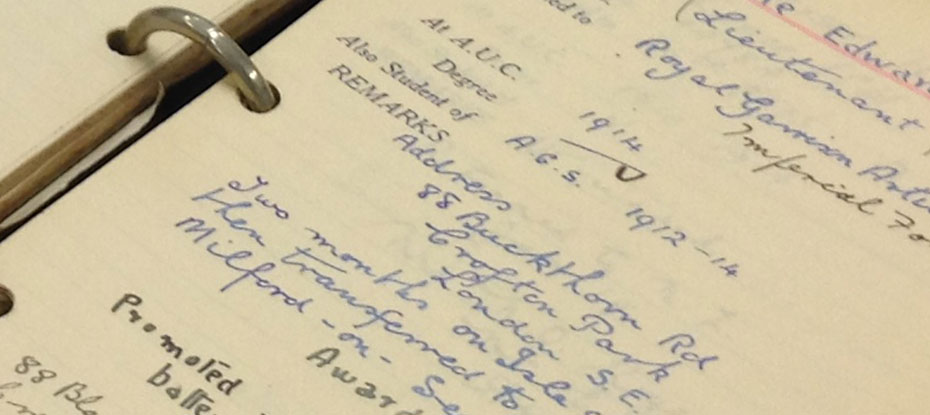 Edwar
(Lieutenant
Royal Garrison Artil
Imperial Fo
At A.U.C. 1914
Degree
Also Student of A.G.S. 1912-14
REMARKS
Address
88 Buckthorn Rd
Crofton Park
London S.E.
Two months on Isle
then transferred to
Milford-on-Se
Award
Promoted
batte
88 Bl